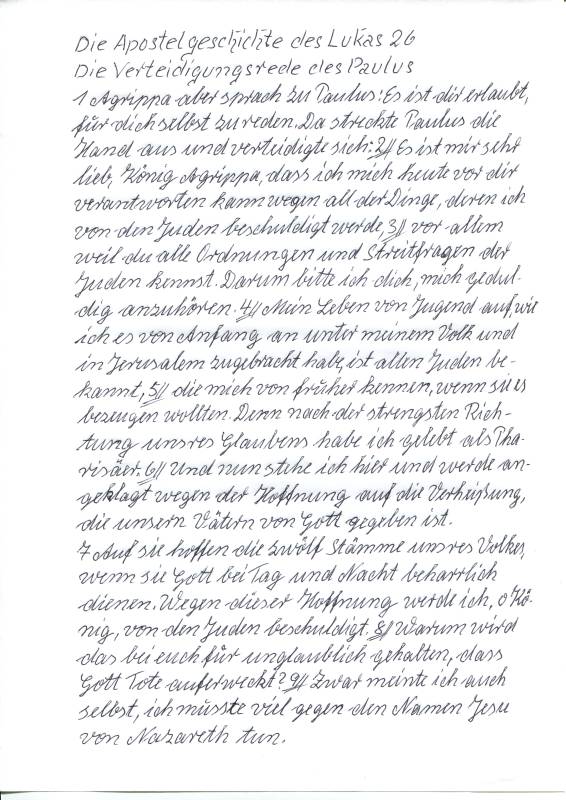 Die Apostelgeschichte des Lukas 26
Die Verteidigungsrede des Paulus
1 Agrippa aber sprach zu Paulus: Es ist dir erlaubt,
für dich selbst zu reden. Da streckte Paulus die
Hand aus und verteidigte sich: 2// Es ist mir sehr
lieb, König Agrippa, dass ich mich heute vor dir
verantworten kann wegen all der Dinge, deren ich
von den Juden beschuldigt werde, 3// vor allem
weil du alle Ordnungen und Streitfragen der
Juden kennst. Darum bitte ich dich, mich gedul-
dig anzuhören. 4// Mein Leben von Jugend auf, wie
ich es von Anfang an unter meinem Volk und
in Jerusalem zugebracht habe, ist allen Juden be-
kannt, 5// die mich von früher kennen, wenn sie es
bezeugen wollten. Denn nach der strengsten Rich-
tung unsres Glaubens habe ich gelebt als Pha-
risäer. 6// Und nun stehe ich hier und werde an-
geklagt wegen der Hoffnung auf die Verheißung,
die unsern Vätern von Gott gegeben ist.
7 Auf sie hoffen die zwölf Stämme unsres Volkes,
wenn sie Gott bei Tag und Nacht beharrlich
dienen. Wegen dieser Hoffnung werde ich, o Kö-
nig, von den Juden beschuldigt. 8// Warum wird
das bei euch für unglaublich gehalten, dass
Gott Tote auferweckt? 9// Zwar meinte ich auch
selbst, ich müsste viel gegen den Namen Jesu
von Nazareth tun.